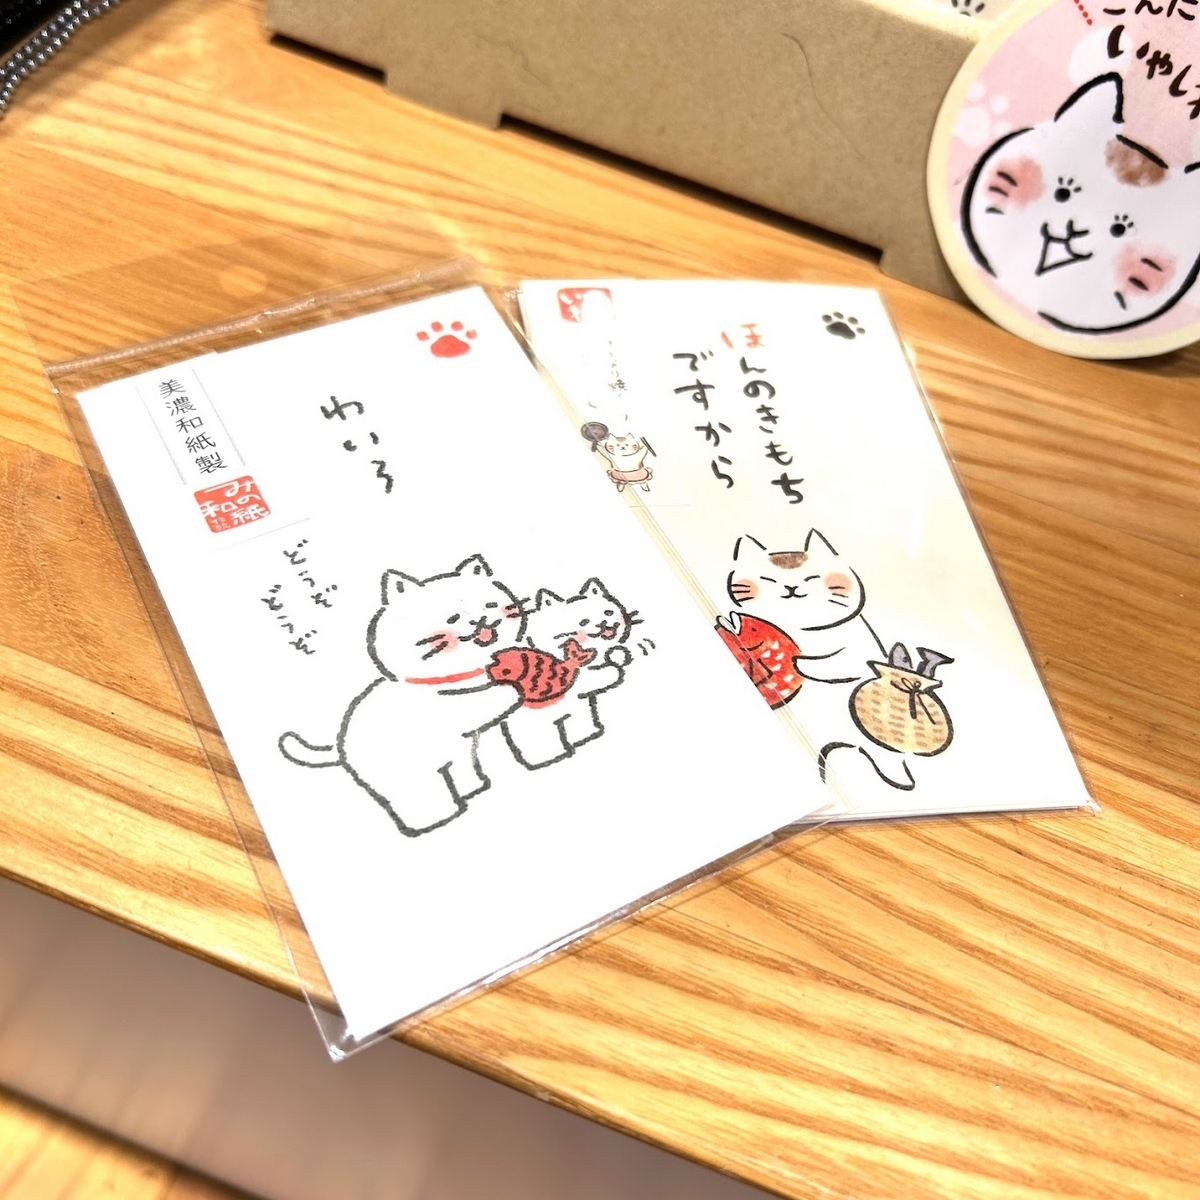 わいろ
どうぞ
どうぞ
美濃和紙製
みの
和紙
ほんのきもち
ですから
いやし